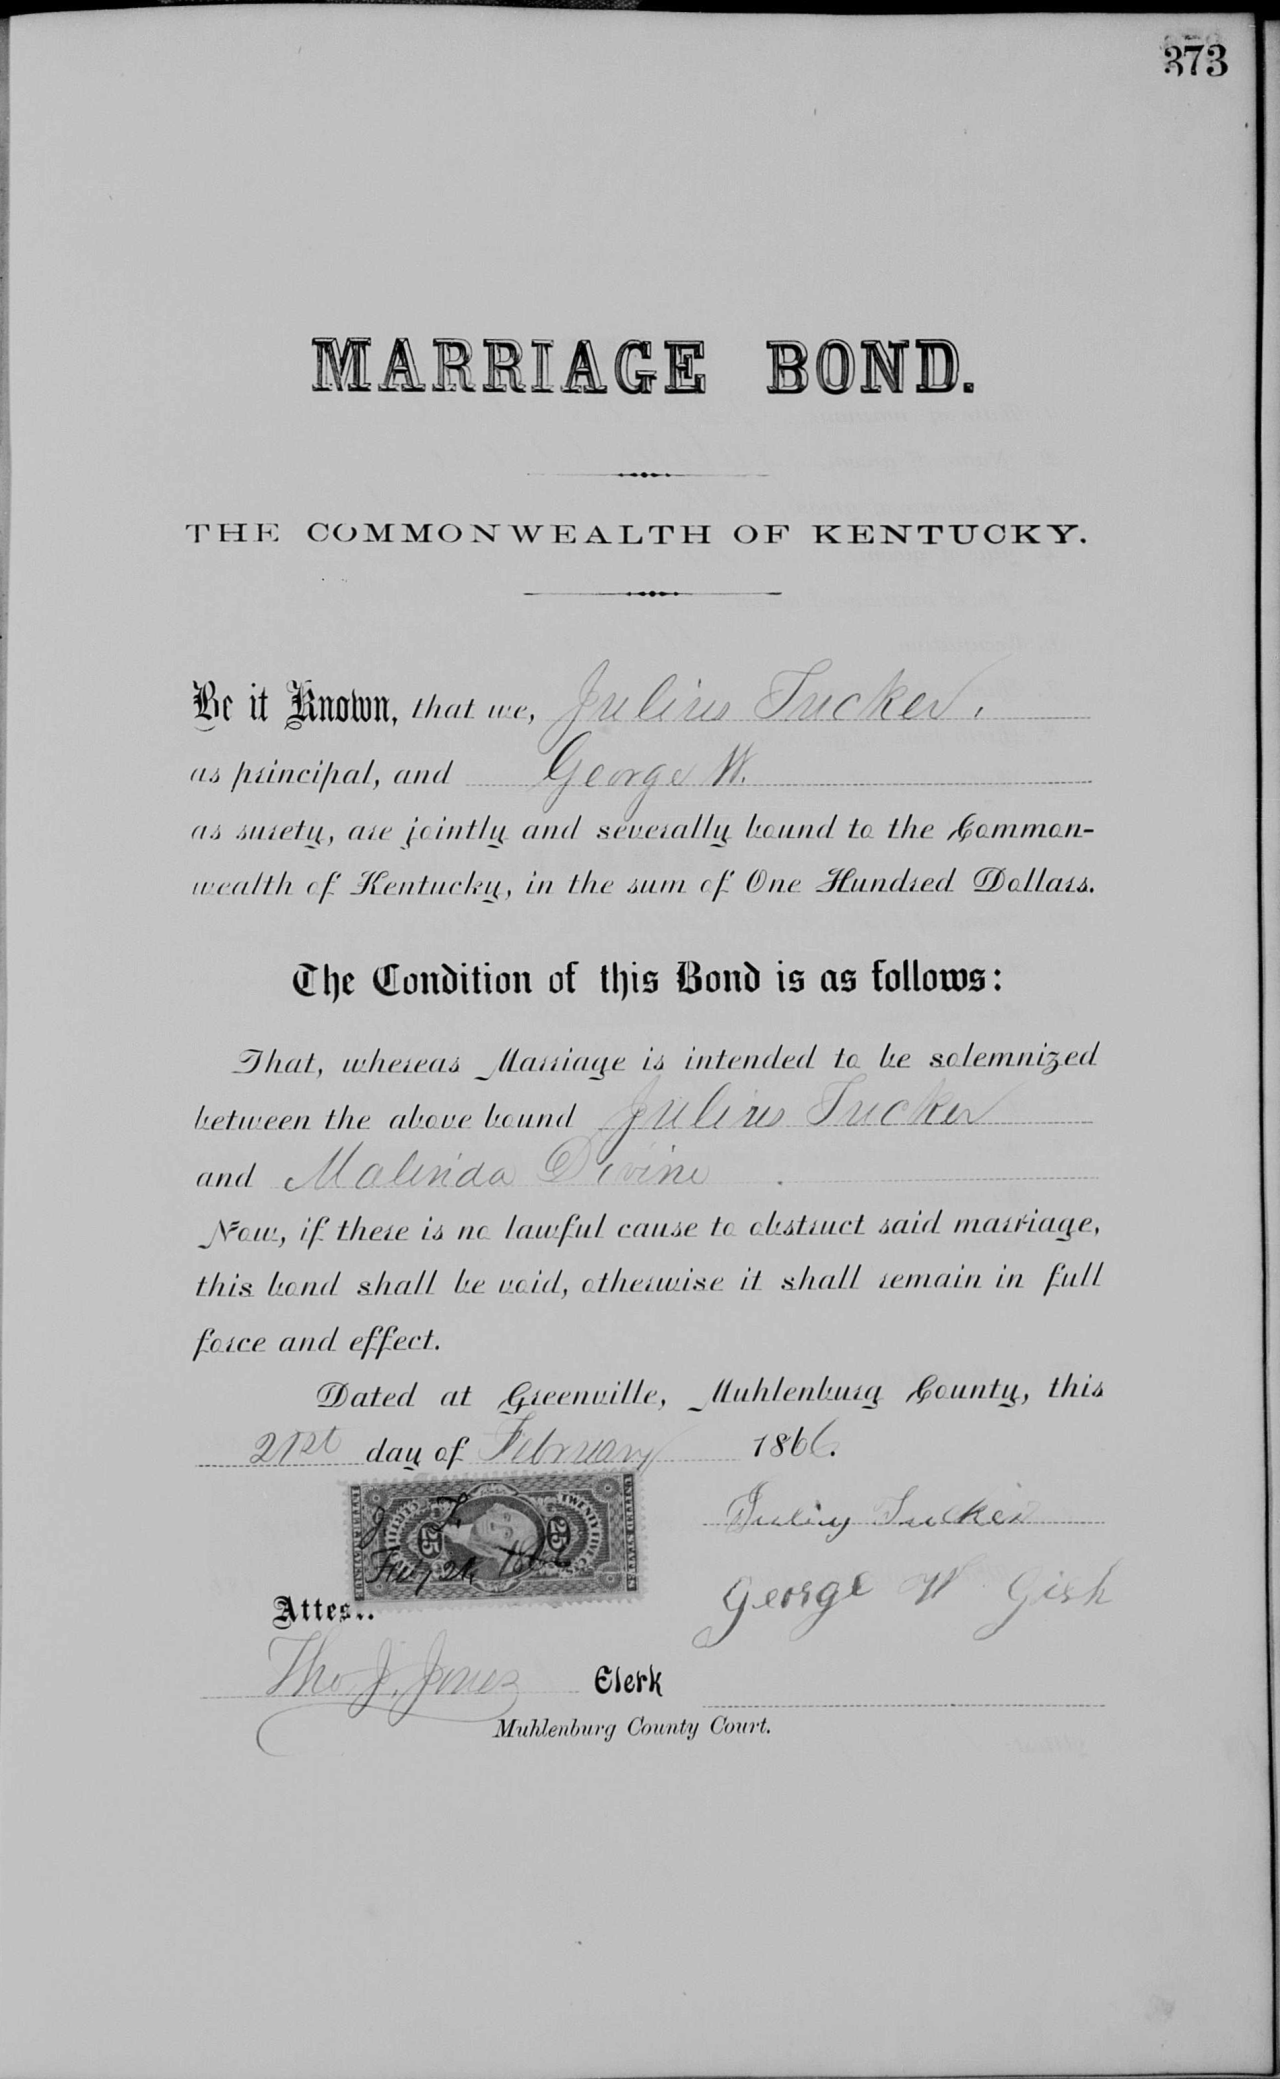 373
MARRIAGE BOND.
THE COMMONWEALTH OF KENTUCKY.
Be it Known, that we, Julius Tucker.
as principal, and George W.
as surety, are jointly and severally bound to the Common-
wealth of Kentucky, in the sum of One Hundred Dollars.
The Condition of this Bond is as follows:
That, whereas Marriage is intended to be solemnized
between the above bound Julius Tucker
and Malinda Divine .
Now, if there is no lawful cause to obstruct said marriage,
this bond shall be void, otherwise it shall remain in full
force and effect.
Dated at Greenville, Muhlenburg County, this
21st day of February 1866.
J. T.
25 25
Tucker
George W Gish
Attest.
Tho. J. Jones Clerk
Muhlenburg County Court.